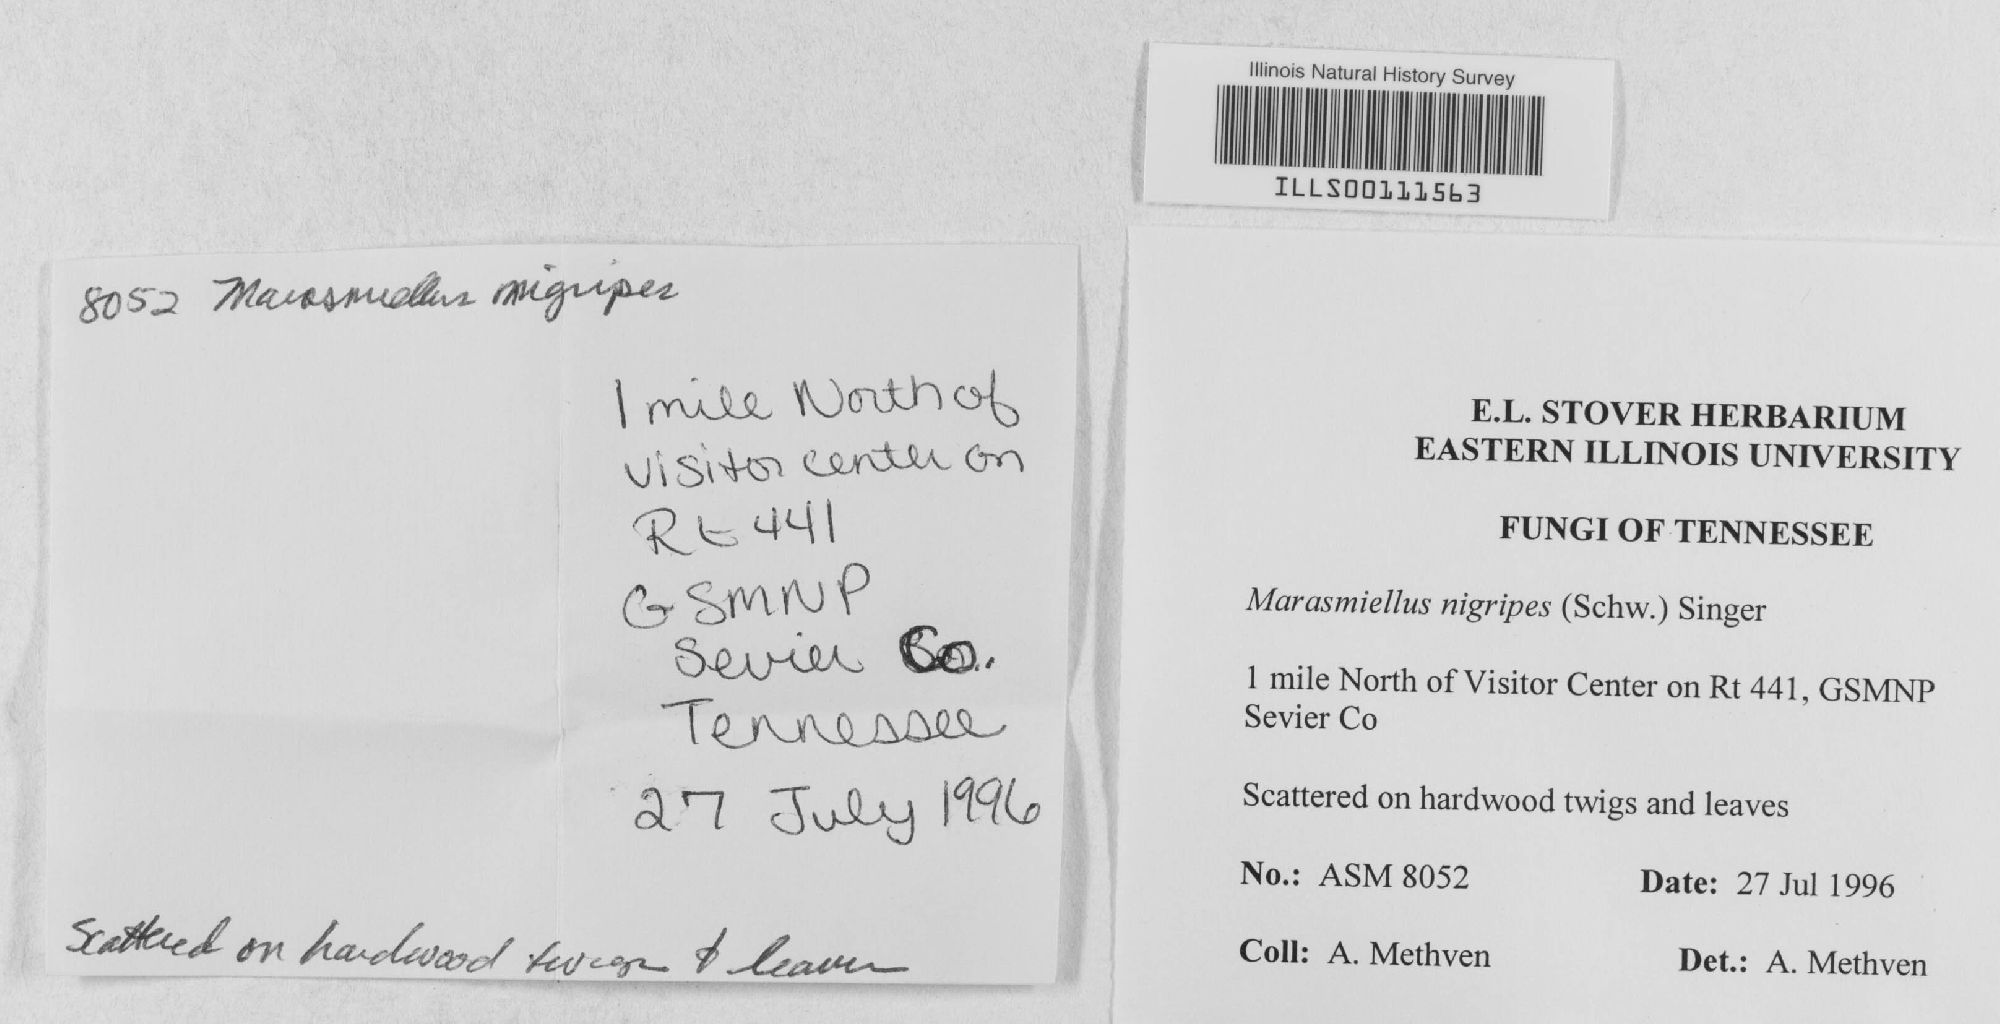 Illinois Natural History Survey
ILLS00111563
8052 Marasmiellus nigripes
1 mile North of
visitor center on
Rt 441
GSMNP
Sevier Co.
Tennessee
27 July 1996
Scattered on hardwood twigs & leaves
E.L. STOVER HERBARIUM
EASTERN ILLINOIS UNIVERSITY
FUNGI OF TENNESSEE
Marasmiellus nigripes (Schw.) Singer
1 mile North of Visitor Center on Rt 441, GSMNP
Sevier Co
Scattered on hardwood twigs and leaves
No.: ASM 8052 Date: 27 Jul 1996
Coll: A. Methven Det.: A. Methven